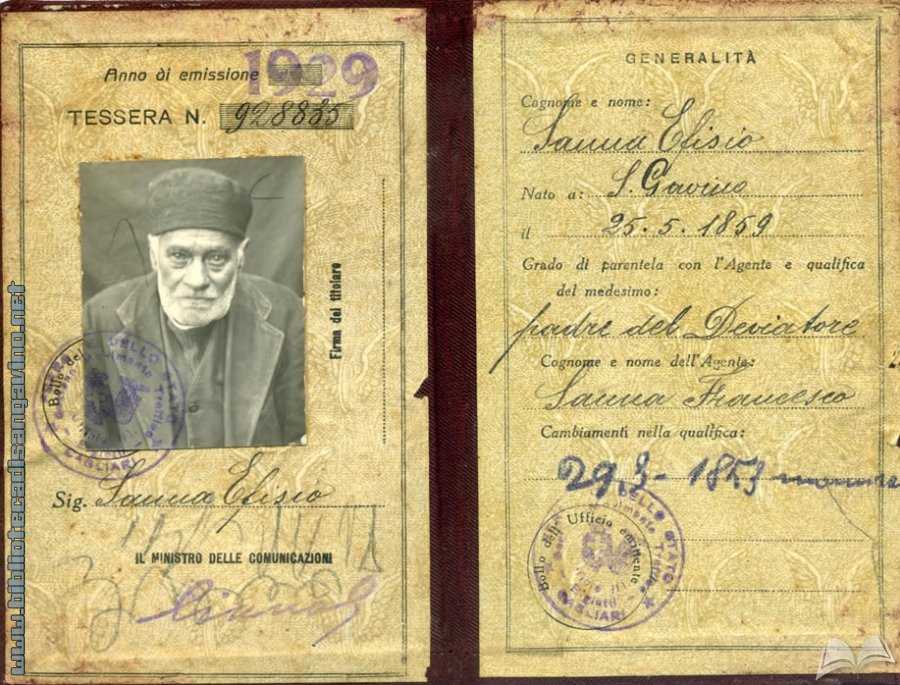 Anno di emissione 1929
TESSERA N. 928835
Firma del titolare
FERROVIE DELLO STATO
CAGLIARI
Sig. Sanna Efisio
IL MINISTRO DELLE COMUNICAZIONI
GENERALITÀ
Cognome e nome:
Sanna Efisio
Nato a: S. Gavino
il 25.5.1859
Grado di parentela con l'Agente e qualifica
del medesimo:
padre del Deviatore
Cognome e nome dell'Agente:
Sanna Francesco
Cambiamenti nella qualifica:
29.3-1853
Bollo dell' Ufficio emittente
DELLO STATO
CAGLIARI
www.bibliotecadisangavino.net